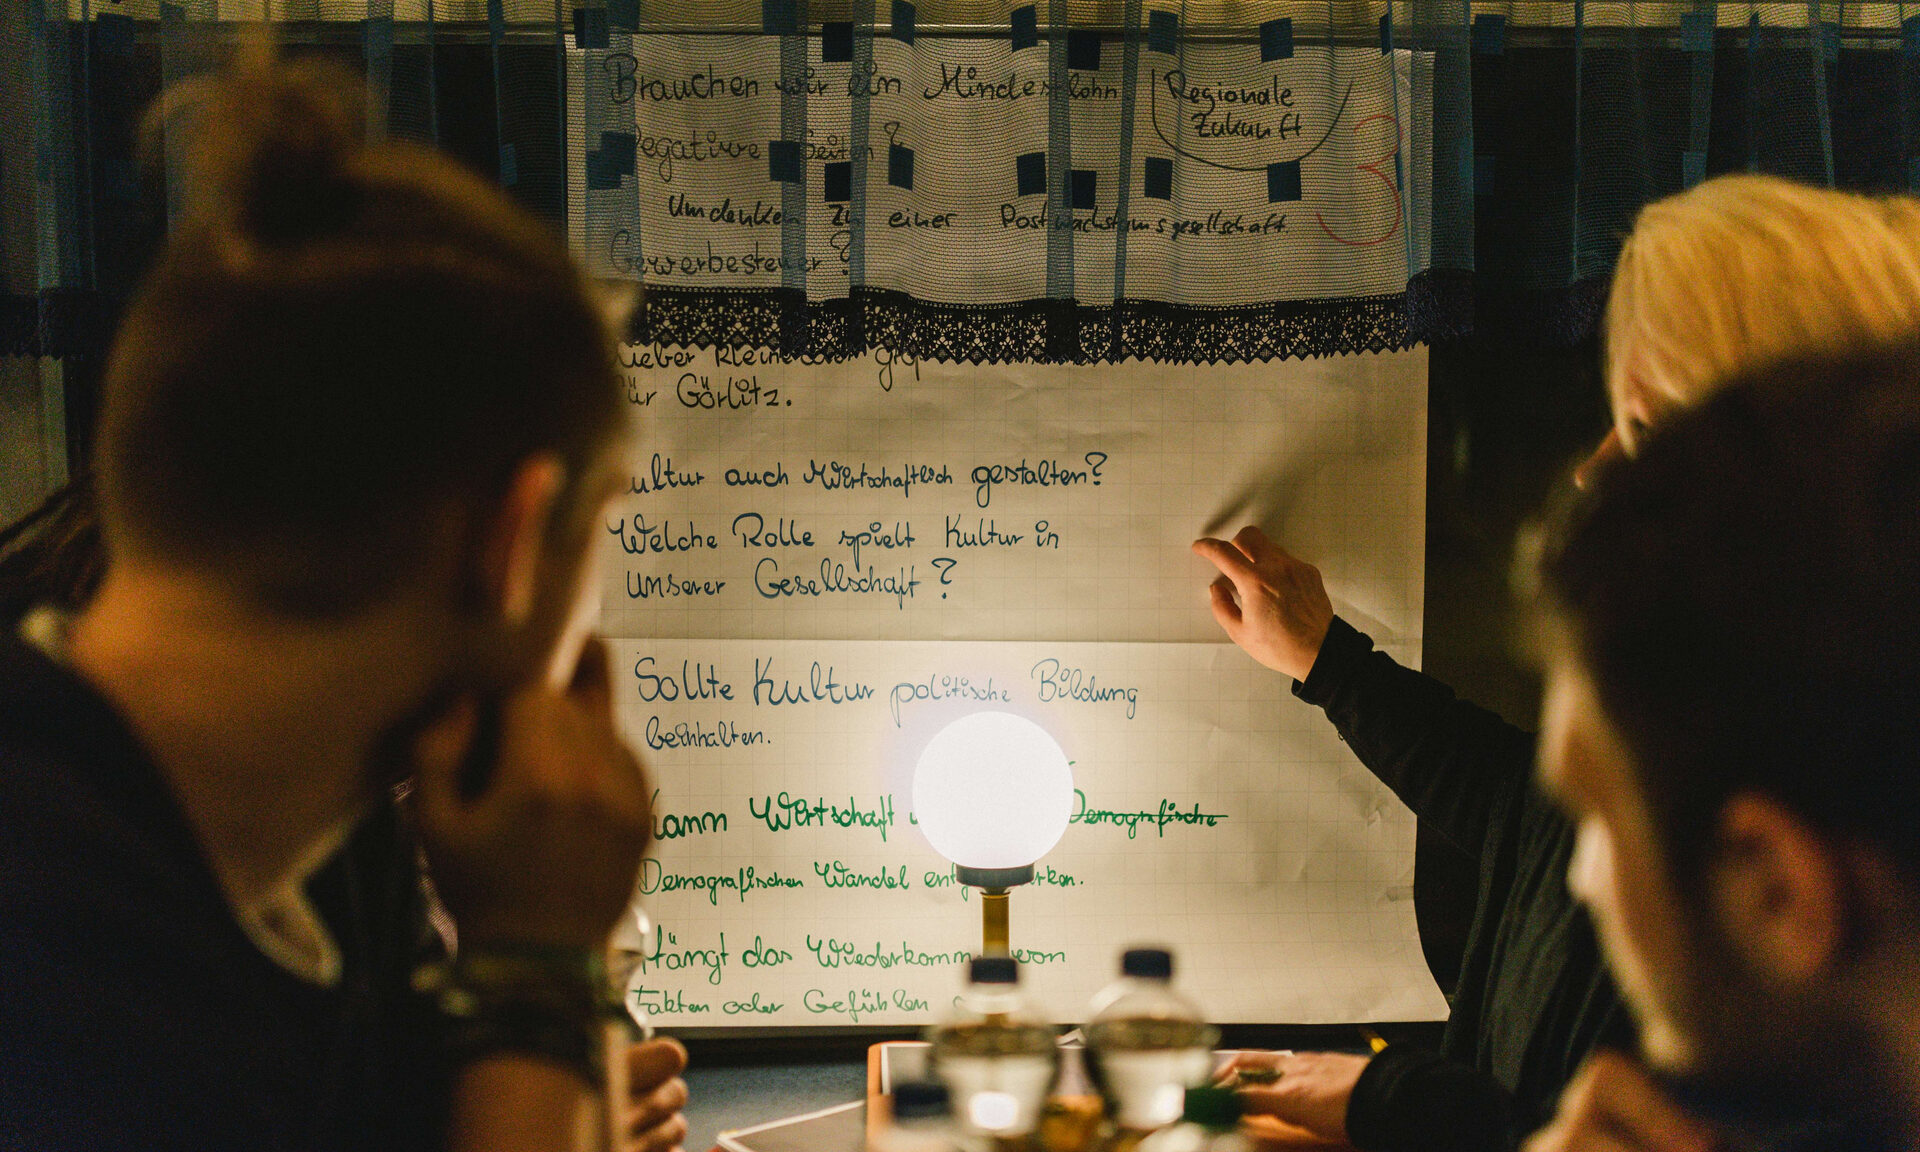 Brauchen wir ein Mindestlohn
Regionale
Zukunft
3
Negative Seiten?
Umdenken zu einer Postwachstumsgesellschaft.
Gewerbesteuer?
Lieber kleine oder
für Görlitz.
Kultur auch Wirtschaftlich gestalten?
Welche Rolle spielt Kultur in
unserer Gesellschaft?
Sollte Kultur politische Bildung
beinhalten.
Kann Wirtschaft Demografische
Demografischen Wandel
Hängt das Wiederkommen von
Fakten oder Gefühlen